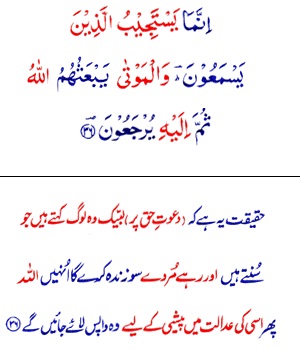 اِنَّمَا يَسْتَجِيْبُ الَّذِيْنَ
يَسْمَعُوْنَ ؔ وَالْمَوْتٰى يَبْعَثُهُمُ اللّٰهُ
ثُمَّ اِلَيْهِ يُرْجَعُوْنَ ؔ ﴿۳۶﴾
حقیقت یہ ہے کہ (دعوتِ حق پر) لبّیک وہ لوگ کہتے ہیں جو
سُنتے ہیں اور رہے مُردے سو زندہ کرے گا اُنہیں اللہ
پھر اسی کی عدالت میں پیشی کے لیے وہ واپس لائے جائیں گے ﴿۳۶﴾